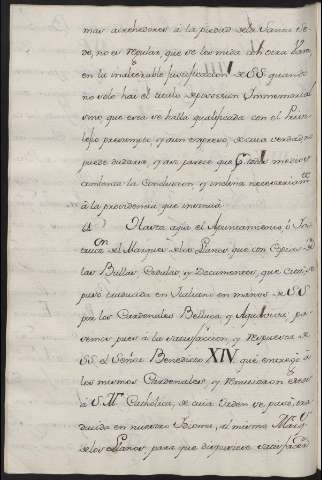 mas acrehedores a la piedad de la Santa Se-
de, no es regular, que se les mida con otra Vara
en la inalterable justificacion de SS. quando
no solo hai el titulo de posesion Immemorial
sino que esta se halla qualificada con el Privi-
lejio presumpto, y aun expreso, de cuia verdad no
puede dudarse, y assi parece que
convence la conclucion y inclina necesariam.te
à la providencia que insinuà
Hasta aqui el Apuntamiento, ò In-
truc.on del Marques de los Llanos que con Copias de
las Bullas, Cedulas, y Documentos, que cita,
puso traducida en Italiano en manos de SS
por los Cardenales Belluga, y Aquaviva, pa-
semos pues à la satisfaccion, y Respuesta de
SS. el Señor Benedicto XIV. que entregò à
los mismos Cardenales, y remitieron estos
à S. M. Catholica, de cuia orden se pasò tra-
ducida en nuestro Idioma, al mismo Marq.s
de los Llanos para que dispusiere satisfacer